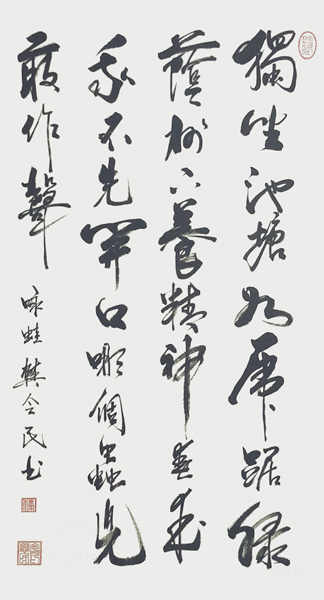 獨坐池塘如虎踞緑
蔭樹下養精神春來
我不先開口哪個蟲兒
敢作聲
咏蛙 樊民书